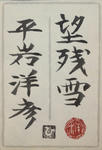 望残雪
平岩洋彦